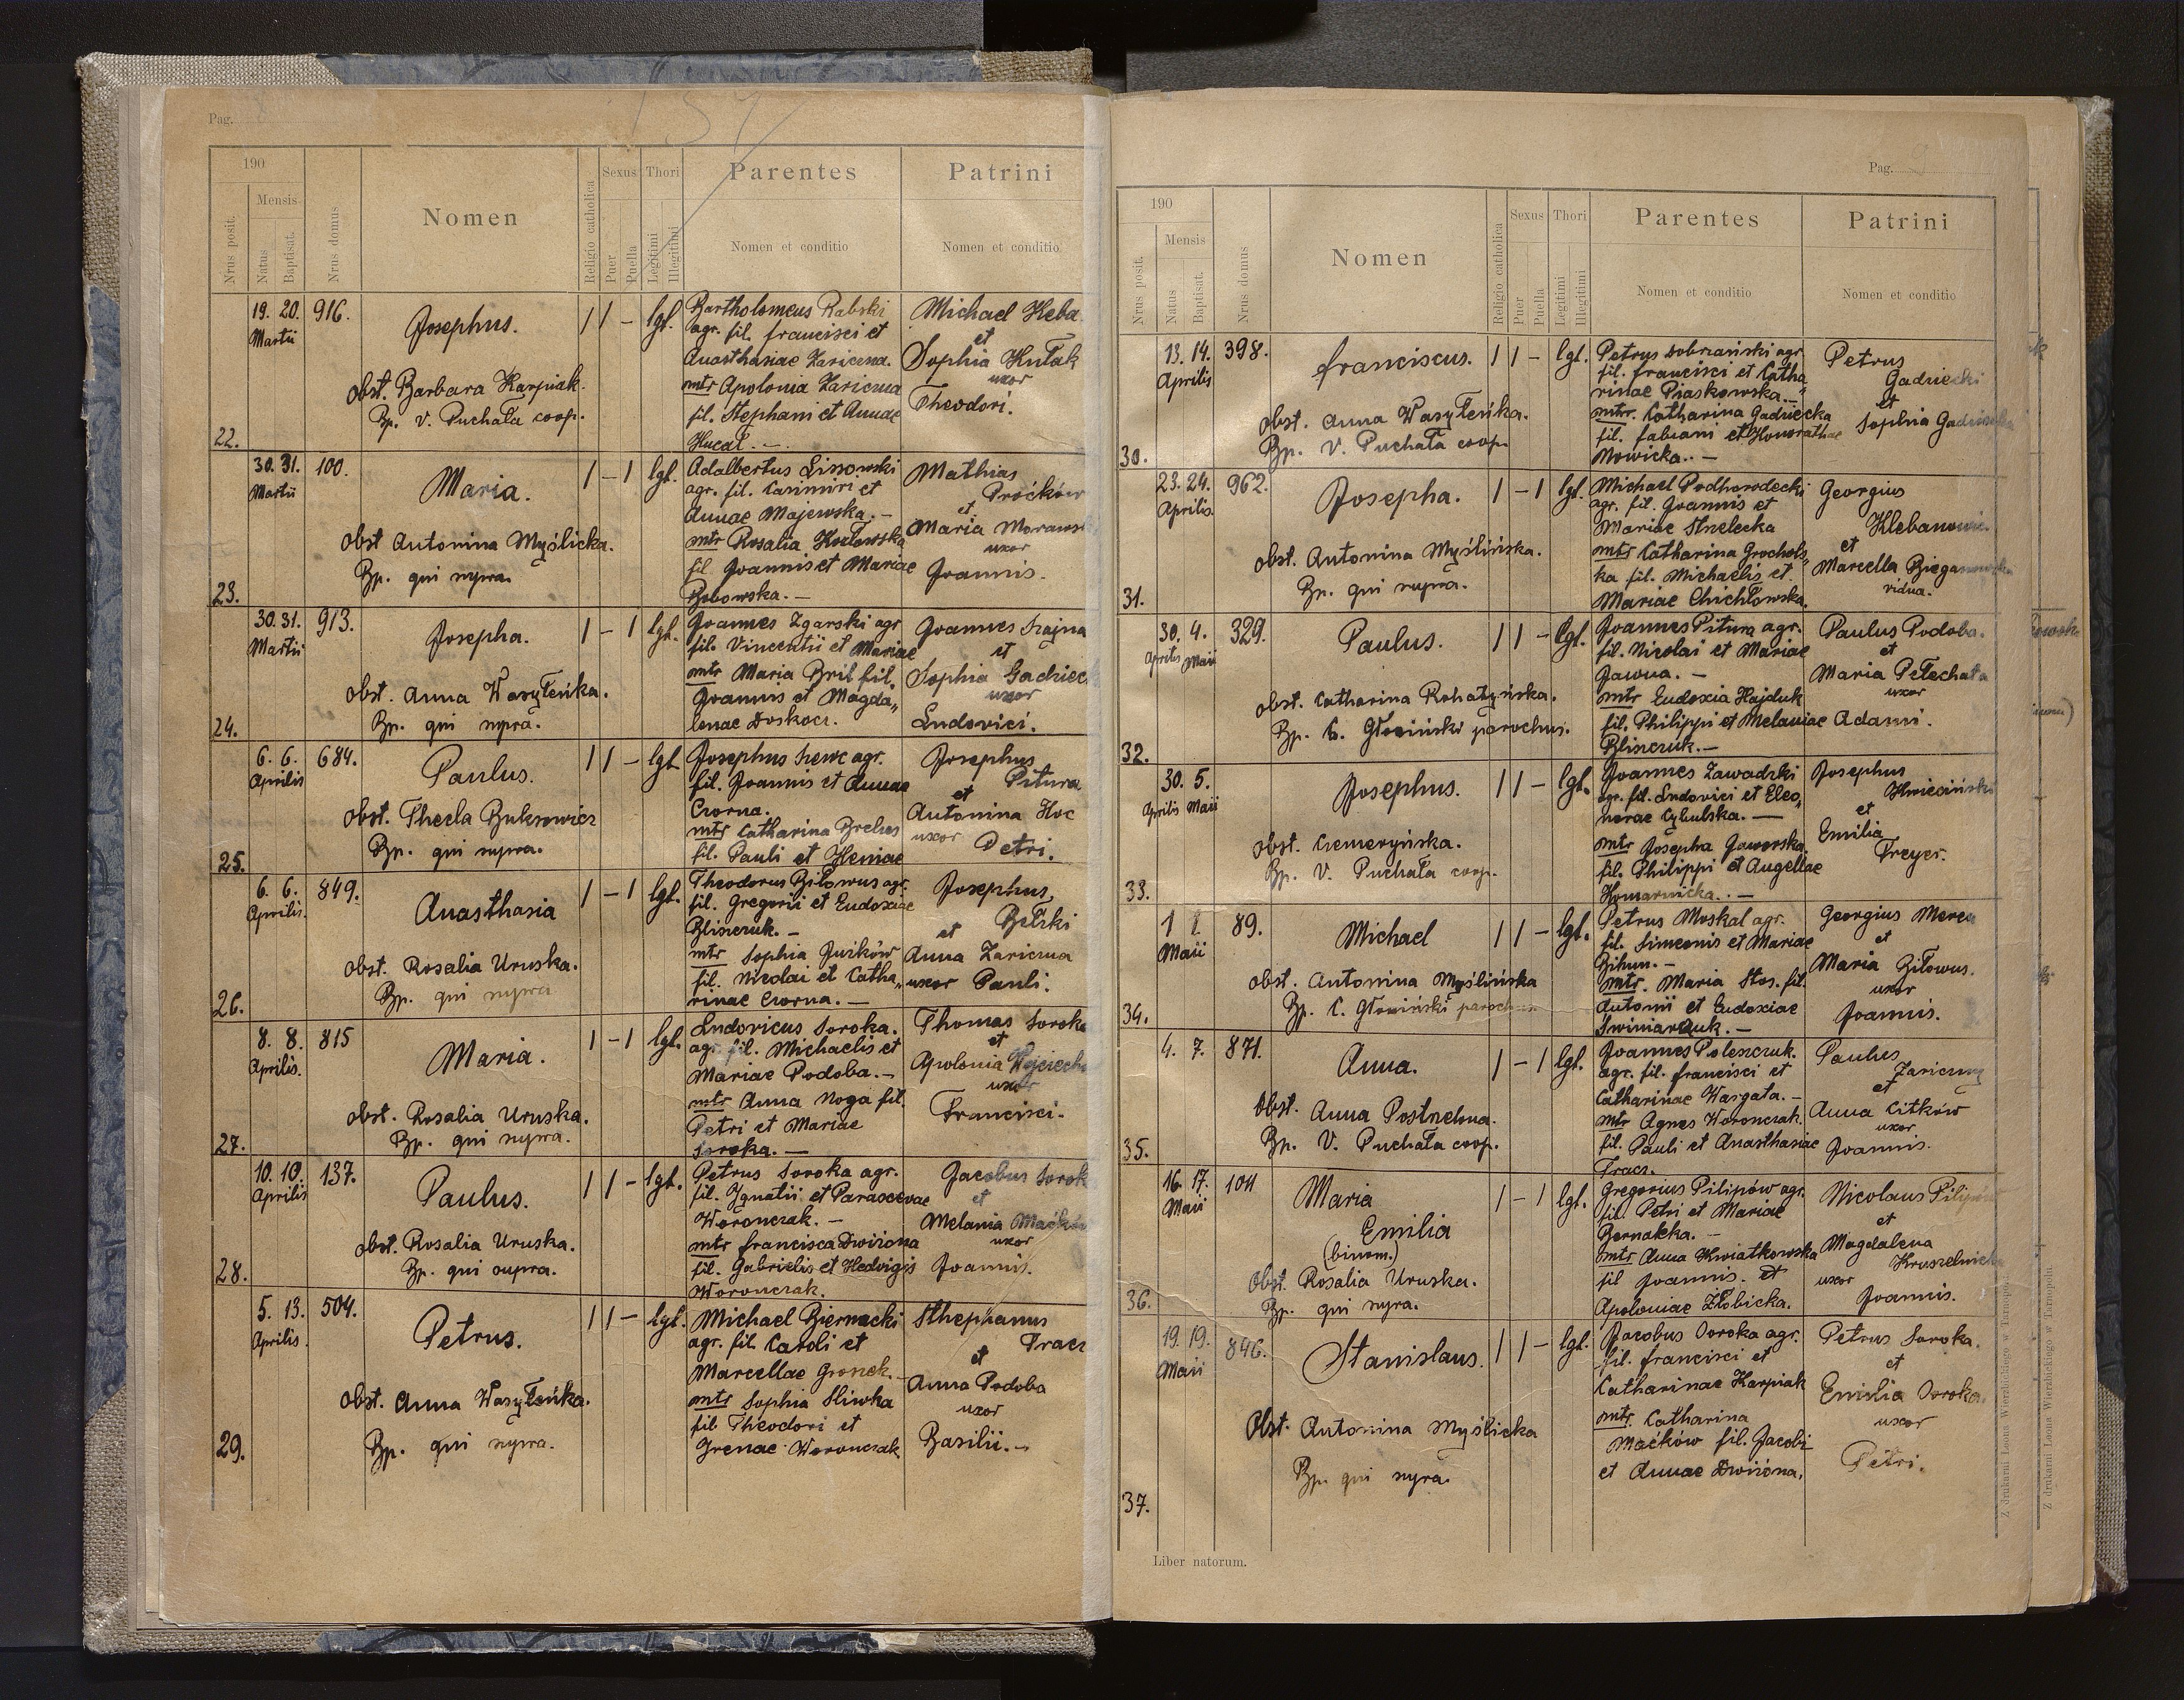 Pag. 8
190
Nrus posit.
Mensis
Natus
Baptisat.
Nrus domus
Nomen
Religio catholica
Sexus
Puer
Puella
Thori
Legitimi
Illegitimi
Parentes
Nomen et conditio
Patrini
Nomen et conditio
22.
19. 20.
Martii
916.
Josephus.
obst. Barbara Karpiak.
Bp. V. Puchała coop.
1 1 - lgt.
Bartholomeus Rabski
agr. fil. francisci et
Anasthasiae Zariczna.
mtr Apolonia Zariczna
fil. Stephani et Annae
Hucał. -
Michael Heba
et
Sophia Kułak
uxor
Theodori.
23.
30. 31.
Martii
100.
Maria.
obst Antonina Myślicka.
Bp. qui supra.
1 - 1 lgt.
Adalbertus Lissowski
agr. fil. Casimiri et
Annae Majewska. -
mtr Rosalia Kozłowska
fil Joannis et Mariae
Bobowska. -
Mathias
Proćków
et
Maria
uxor
Joannis.
24.
30. 31.
Martii
913.
Josepha.
obst. Anna Wasyłeńka.
Bp. qui supra.
1 - 1 lgt.
Joannes Zgarski agr
fil. Vincentii et Mariae
mtr Maria Bril fil.
Joannis et Magda„
lenae Doskocz.
Joannes Szajna
et
Sophia
uxor
Ludovici.
25.
6. 6.
Aprilis
684.
Paulus.
obst. Thecla Buksowicz
Bp. qui supra.
1 1 - lgt
Josephus Szewc agr.
fil. Joannis et Annae
Czorna.
mtr Catharina Brelus
fil. Pauli et Xeniae
Josephus
Pitura
et
Antonina Hoc
uxor Petri.
26.
6. 6.
Aprilis.
849.
Anasthasia
obst. Rosalia Uruska.
Bp. qui supra
1 - 1 lgt.
Theodorus Biłowus agr.
fil. Gregorii et Eudoxiae
Bliszczuk. -
mtr Sophia Jurków
fil. Nicolai et Catha„
rinae Czorna. -
Josephus
Bełski
et
Anna Zariczna
uxor Pauli.
27.
8. 8.
Aprilis.
815
Maria.
obst. Rosalia Uruska.
Bp. qui supra.
1 - 1 lgt.
Ludovicus Soroka.
agr. fil. Michaelis et
Mariae Podoba. -
mtr Anna Noga fil.
Petri et Mariae
Soroka. -
Thomas Soroka
et
Apolonia
uxor
Francisci.
28.
10. 10.
Aprilis
137.
Paulus.
obst. Rosalia Uruska.
Bp. qui supra.
1 1 - lgt.
Petrus Soroka agr.
fil. Ignatii et Parascevae
Woronczak. -
mtr francisca Dwiżona
fil. Gabrielis et Hedvigis
Woronczak.
Jacobus Sorok
et
Melania Maćków
uxor
Joannis.
29.
5. 13.
Aprilis.
504.
Petrus.
obst. Anna Wasyłeńka.
Bp. qui supra.
1 1 - lgt.
Michael Biernacki
agr. fil. Caroli et
Marcellae Gronek.
mtr Sophia Sliwka
fil Theodori et
Irenae Woronczak
Sthephanus
Tracz
et
Anna Podoba
uxor
Basilii. -
Pag. 9
190
Nrus posit.
Mensis
Natus
Baptisat.
Nrus domus
Nomen
Religio catholica
Sexus
Puer
Puella
Thori
Legitimi
Illegitimi
Parentes
Nomen et conditio
Patrini
Nomen et conditio
30.
13. 14.
Aprilis
398.
franciscus.
obst. Anna Wasyłeńka.
Bp. V. Puchała coop.
1 1 - lgt.
Petrus Dobrzański agr.
fil. francisci et Catha„
rinae Piaskowska. -
mtr. Catharina Gadziecka
fil. fabiani et Honorathae
Nowicka. -
Petrus
Gadziecki
et
Sophia Gadziecka
31.
23. 24.
Aprilis.
962.
Josepha.
obst. Antonina Myślińska.
Bp. qui supra.
1 - 1 lgt.
Michael Podhorodecki
agr. fil. Joannis et
Mariae Strzelecka
mtr Catharina Grochols„
ka fil. Michaelis et
Mariae Chichłowska.
Georgius
Klebanowicz
et
Marcella
vidua.
32.
30. 4.
Aprilis Maii
329.
Paulus.
obst. Catharina Rohatyńska.
Bp. C. Głowiński parochus.
1 1 - lgt.
Joannes Pitura agr.
fil. Nicolai et Mariae
Jawna. -
mtr Eudoxia Hajduk
fil. Philippi et Melaniae
Bliszczuk. -
Paulus Podoba.
et
Maria Petechata
uxor
Adami.
33.
30. 5.
Aprilis Maii
Josephus.
obst. Czemeryńska.
Bp. V. Puchała coop.
1 1 - lgt.
Joannes Zawadzki
agr. fil. Ludovici et Eleo„
norae Cybulska. -
mtr Josepha Jaworska.
fil. Philippi et Angellae
Komarnicka. -
Josephus
Kwieciński
et
Emilia
Treyer.
34.
1 1.
Maii
89.
Michael
obst. Antonina Myślińska
Bp. C. Głowiński parochus
1 1 - lgt.
Petrus Moskal agr.
fil. Simeonis et Mariae
Bihun. -
mtr. Maria Stos. fil.
Antonii et Eudoxiae
Swiniarczuk. -
Georgius
et
Maria Biłowus.
uxor
Joannis.
35.
4. 7.
871.
Anna.
obst. Anna Postrzelna.
Bp. V. Puchała coop.
1 - 1 lgt.
Joannes Poleszczuk.
agr. fil. francisci et
Catharinae Wargata. -
mtr Agnes Woronczak.
fil. Pauli et Anasthasiae
Tracz.
Paulus
Zariczny
et
Anna Citków
uxor
Joannis.
36.
16. 17.
Maii
1011
Maria
Emilia
(binom.)
Obst. Rosalia Uruska.
Bp. qui supra.
1 - 1 lgt.
Gregorius Pilipów agr.
fil. Petri et Mariae
Bernacka. -
mtr Anna Kwiatkowska
fil Joannis. et
Apoloniae Złobicka.
Nicolaus Pilipów
et
Magdalena
Kruszelnicka
uxor
Joannis.
37.
19. 19.
Maii
846.
Stanislaus.
Obst. Antonina Myślicka
Bp. qui supra.
1 1 - lgt.
Jacobus Soroka agr.
fil. francisci et
Catharinae Karpiak
mtr. Catharina
Maćków fil. Jacobi
et Annae Dwiżona.
Petrus Soroka.
et
Emilia Soroka.
uxor
Petri.
Liber natorum.
Z drukarni Leona Wierzbickiego w Tarnopolu
Z drukarni Leona Wierzbickiego w Tarnopolu